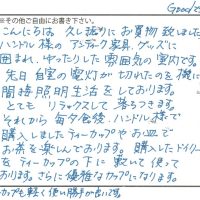 Good
※その他ご自由にお書き下さい。
こんにちは 久し振りにお買物致しました
ハンドル様のアンティーク家具、グッズに
囲まれ、ゆったりした雰囲気の室内です。
先日 自室の蛍灯が切れたのを機に
間接照明生活をしております。
とても リラックスして 落ちつきます。
それから 毎夕食後、ハンドル様で
購入しましたティーカップやお皿で
お茶を楽しんでおります。購入したドイリー
をティーカップの下に敷いて使って
おります。さらに優雅なカップになります。
カップも軽く使い勝手が良いです。